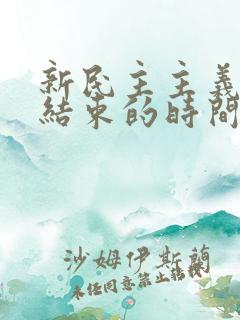 新民主主義
結束的時間
沙姆伊斯蘭
未任同意禁止轉載